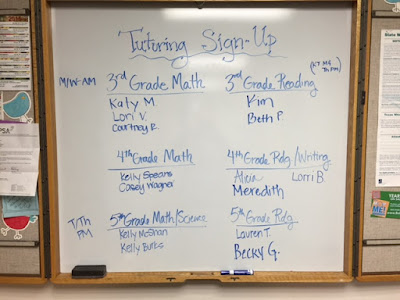 Tutoring Sign-Up
M/W-AM
3rd Grade Math
Katy M.
Lori V.
Courtney R.
3rd Grade Reading
Kim
Beth P.
4th Grade Math
Kelly Spears
Casey Wagner
4th Grade Rdg/Writing
Alicia
Lorri B.
Meredith
T/Th
PM
5th Grade Math/Science
Kelly McShan
Kelly Burks
5th Grade Rdg
Lauren T.
Becky G.